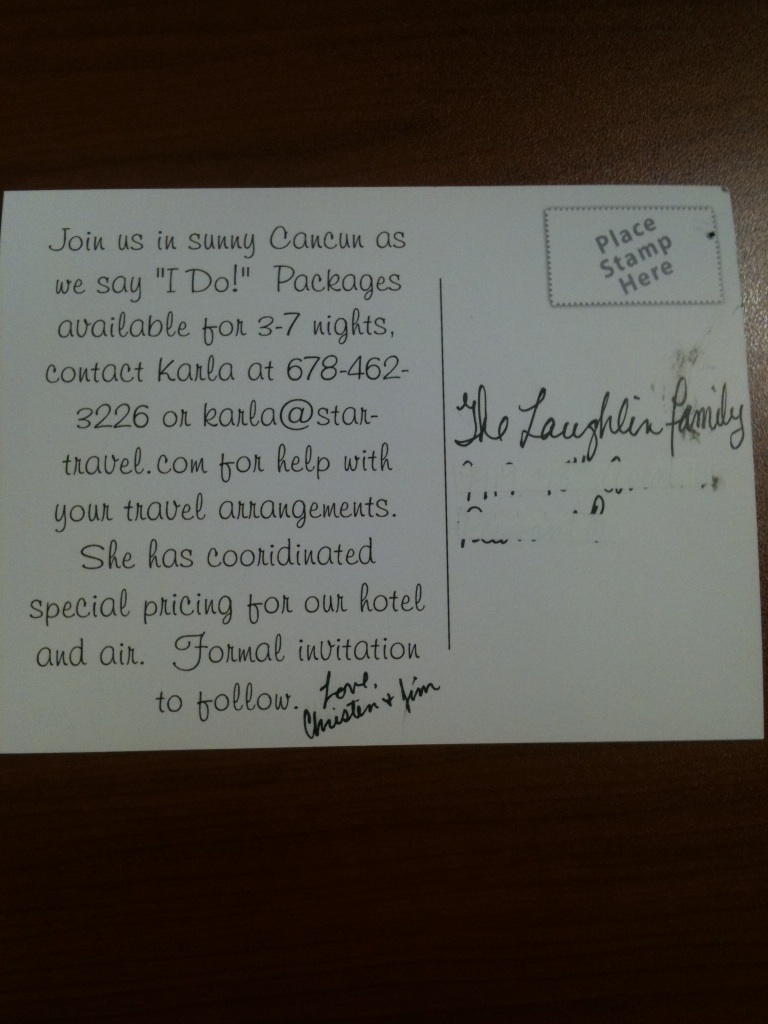 Join us in sunny Cancun as
we say "I Do!" Packages
available for 3-7 nights,
contact Karla at 678-462-
3226 or karla@star-
travel.com for help with
your travel arrangements.
She has cooridinated
special pricing for our hotel
and air. Formal invitation
to follow.
Love,
Christen & Jim
Place
Stamp
Here
The Laughlin Family